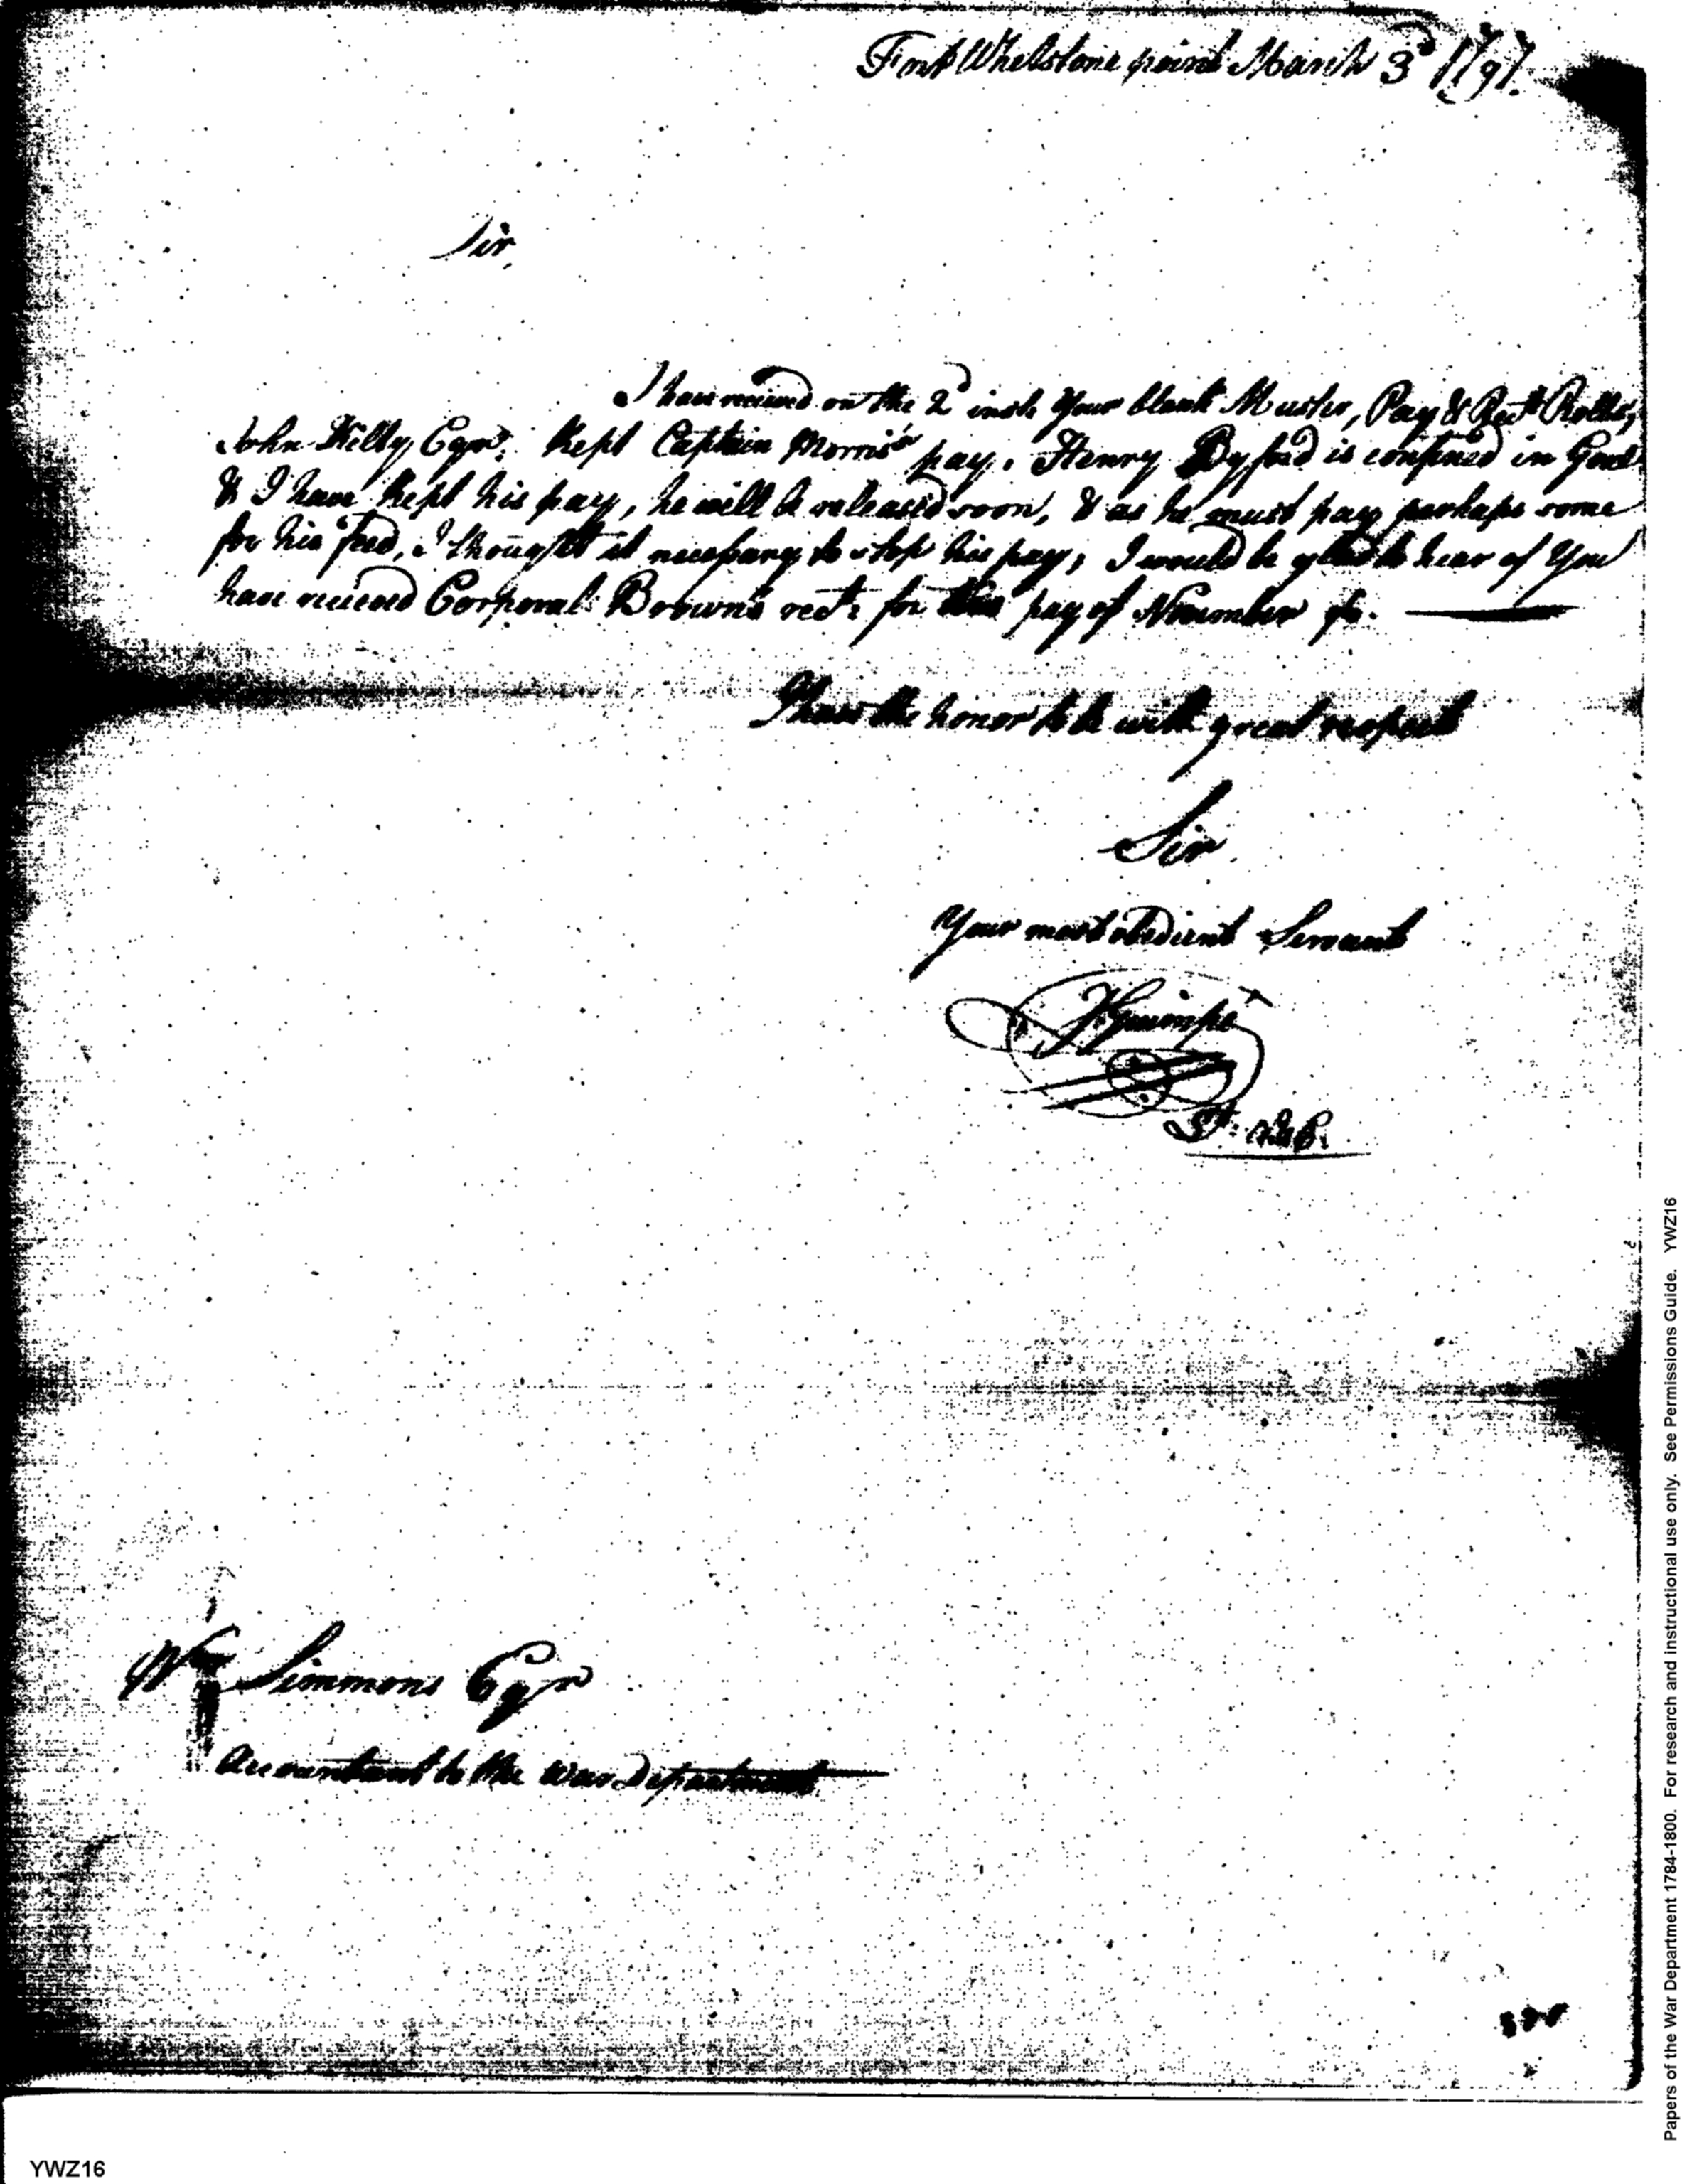 Fort Whetstone point March 3d 1797.
Sir,
I have recieved on the 2d inst. Your blank Muster, Pay & Rect. Rolls,
John Kilty Eqr. Kept Captain Morris's pay. Henry Byford is confined in Goal
& I have Kept his pay, he will be released soon, & as he must pay perhaps some
for his feed, I thought it necessary to stop his pay; I would be glad to hear of You
have recieved Corporal Brown's rect. for pay of November
I have the honor to be with great respect
Sir
Your most obedient Servant
Wm Simmons Eqr
Accountant to the War Department
Papers of the War Department 1784-1800. For research and instructional use only. See Permissions Guide. YWZ16
YWZ16